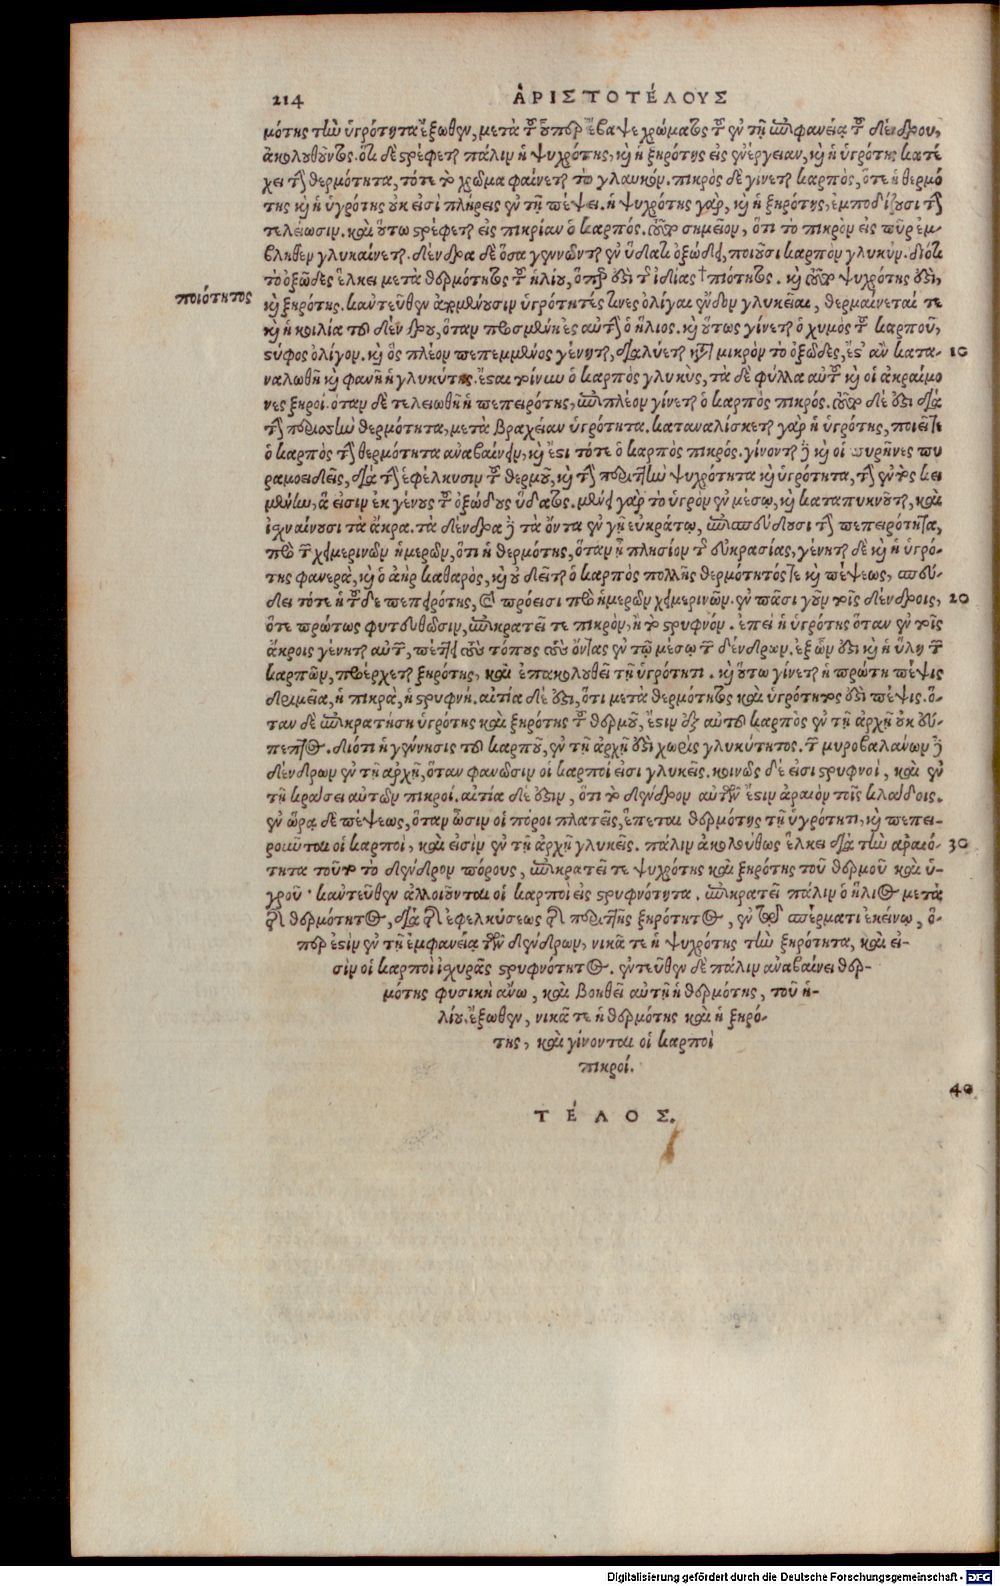 214 ἈΡΙΣΤΟΤΈΛΟΥΣ
μότης τὴν ὑγρότητα ἔξωθεν, μετὰ τοῦ ὅπερ ἔβαψε χρώματος τοῦ ἐν τῇ ἐπιφανείᾳ τοῦ δένδρου,
ἀκολουθοῦντος. ὅτι δὲ στρέφεται πάλιν ἡ ψυχρότης, καὶ ἡ ξηρότης εἰς ἐνέργειαν, καὶ ἡ ὑγρότης κατέ
χει τὴν θερμότητα, τότε τὸ χρῶμα φαίνεται τὸ γλαυκόν. πικρὸς δὲ γίνεται καρπὸς, ὅτε ἡ θερμό
της καὶ ἡ ὑγρότης οὐκ εἰσὶ πλήρεις ἐν τῇ πέψει. ἡ ψυχρότης γὰρ, καὶ ἡ ξηρότης, ἐμποδίζουσι τὴν
τελείωσιν. καὶ οὕτω στρέφεται εἰς πικρίαν ὁ καρπός. τούτου σημεῖον, ὅτι τὸ πικρὸν εἰς πῦρ ἐμ-
βληθὲν γλυκαίνεται. δένδρα δὲ ὅσα γεννῶνται ἐν ὕδατι ὀξώδει, ποιοῦσι καρπὸν γλυκύν. διότι
τὸ ὀξῶδες ἕλκει μετὰ θερμότητος τοῦ ἡλίου, ὅπερ ἐστὶ τῆς ἰδίας † πιότητος. καὶ τοῦτο ψυχρότης ἐστὶ,
ποιότητος
καὶ ξηρότης. καὐτεῦθεν ἀρτύουσιν ὑγρότητές τινες ὀλίγαι ἔνδον γλυκεῖαι, θερμαίνεταί τε
καὶ ἡ κοιλία τοῦ δένδρου, ὅταν προσμένῃ ἐς αὐτὴν ὁ ἥλιος. καὶ οὕτως γίνεται ὁ χυμὸς τοῦ καρποῦ,
στύφος ὀλίγον. καὶ ὃς πλέον πεπεμμένος γένηται, διαλύεται κατὰ μικρὸν τὸ ὀξῶδες, ἔστ' ἂν κατα- 10
ναλωθῇ καὶ φανῇ ἡ γλυκύτης. ἔσται τοίνυν ὁ καρπὸς γλυκὺς, τὰ δὲ φύλλα αὐτοῦ καὶ οἱ ἀκραίμο
νες ξηροί. ὅταν δὲ τελειωθῇ ἡ πεπειρότης, ἐπιπλέον γίνεται ὁ καρπὸς πικρός. τοῦτο δέ ἐστι διὰ
τὴν περισσὴν θερμότητα, μετὰ βραχεῖαν ὑγρότητα. καταναλίσκεται γὰρ ἡ ὑγρότης, ποιεῖ τε
ὁ καρπὸς τὴν θερμότητα ἀναβαίνειν, καὶ ἔστι τότε ὁ καρπὸς πικρός. γίνονται δὲ καὶ οἱ πυρῆνες πυ
ραμοειδεῖς, διὰ τὴν ἐφέλκυσιν τοῦ θερμοῦ, καὶ τὴν περιττὴν ψυχρότητα καὶ ὑγρότητα, τὴν ἐντὸς κει
μένην, ἅ εἰσιν ἐκ γένους τοῦ ὀξώδους ὕδατος. μένει γὰρ τὸ ὑγρὸν ἐν μέσῳ, καὶ καταπυκνοῦται, καὶ
ἰχναίνουσι τὰ ἄκρα. τὰ δένδρα δὲ τὰ ὄντα ἐν γῇ εὐκράτῳ, ἐπισπεύδουσι τὴν πεπειρότητα,
πρὸ τῶν χειμερινῶν ἡμερῶν, ὅτι ἡ θερμότης, ὅταν ᾖ πλησίον τῆς εὐκρασίας, γένηται δὲ καὶ ἡ ὑγρό-
της φανερὰ, καὶ ὁ ἀὴρ καθαρὸς, καὶ οὐ δεῖται ὁ καρπὸς πολλῆς θερμότητός τε καὶ πέψεως, σπεύ-
δει τότε ἡ τοῦδε πεπειρότης, καὶ πρόεισι πρὸ ἡμερῶν χειμερινῶν. ἐν πᾶσι γοῦν τοῖς δένδροις, 20
ὅτε πρώτως φυτευθῶσιν, ἐπικρατεῖ τε πικρὸν, ἢ τὸ στρυφνόν. ἐπεὶ ἡ ὑγρότης ὅταν ἐν τοῖς
ἄκροις γένηται αὐτῶν, πέττει τοὺς τόπους τοὺς ὄντας ἐν τῷ μέσῳ τῶν δένδρων. ἐξ ὧν ἐστὶ καὶ ἡ ὕλη τῶν
καρπῶν, προέρχεται ξηρότης, καὶ ἐπακολουθεῖ τῇ ὑγρότητι. καὶ οὕτω γίνεται ἡ πρώτη πέψις
δριμεῖα, ἢ πικρὰ, ἢ στρυφνή. αἰτία δέ ἐστι, ὅτι μετὰ θερμότητος καὶ ὑγρότητός ἐστι πέψις. ὅ-
ταν δὲ ἐπικρατήσῃ ὑγρότης καὶ ξηρότης τοῦ θερμοῦ, ἔστιν ὁ ἐξ αὐτοῦ καρπὸς ἐν τῇ ἀρχῇ οὐκ εὔ-
πεπτος. διότι ἡ γέννησις τοῦ καρποῦ, ἐν τῇ ἀρχῇ ἐστὶ χωρὶς γλυκύτητος. τῶν μυροβαλάνων δὲ
δένδρων ἐν τῇ ἀρχῇ, ὅταν φανῶσιν οἱ καρποί εἰσι γλυκεῖς. κοινῶς δέ εἰσι στρυφνοὶ, καὶ ἐν
τῇ κράσει αὐτῶν πικροί. αἰτία δέ ἐστιν, ὅτι τὸ δένδρον αὐτῶν ἔστιν ἀραιὸν τοῖς κλάδοις.
ἐν ὥρᾳ δὲ πέψεως, ὅταν ὦσιν οἱ πόροι πλατεῖς, ἕπεται θερμότης τῇ ὑγρότητι, καὶ πεπει-
ροῦνται οἱ καρποὶ, καὶ εἰσὶν ἐν τῇ ἀρχῇ γλυκεῖς. πάλιν ἀκολούθως ἕλκει διὰ τὴν ἀραιό- 30
τητα τοῦτο τὸ δένδρον πόρους, ἐπικρατεῖ τε ψυχρότης καὶ ξηρότης τοῦ θερμοῦ καὶ ὑ-
γροῦ· καὐτεῦθεν ἀλλοιοῦνται οἱ καρποὶ εἰς στρυφνότητα. ἐπικρατεῖ πάλιν ὁ ἥλιος μετὰ
τῆς θερμότητος, διὰ τῆς ἐφελκύσεως τῆς περιττῆς ξηρότητος, ἐν τῷ σπέρματι ἐκείνῳ, ὅ-
περ ἐστὶν ἐν τῇ ἐμφανείᾳ τῶν δένδρων, νικᾶ τε ἡ ψυχρότης τὴν ξηρότητα, καὶ εἰ-
σὶν οἱ καρποὶ ἰσχυρᾶς στρυφνότητος. ἐντεῦθεν δὲ πάλιν ἀναβαίνει θερ-
μότης φυσικὴ ἄνω, καὶ βοηθεῖ αὐτῇ ἡ θερμότης, τοῦ ἡ-
λίου ἔξωθεν, νικᾶ τε ἡ θερμότης καὶ ἡ ξηρό-
της, καὶ γίνονται οἱ καρποὶ
πικροί.
40
ΤΈΛΟΣ.
Digitalisierung gefördert durch die Deutsche Forschungsgemeinschaft - DFG